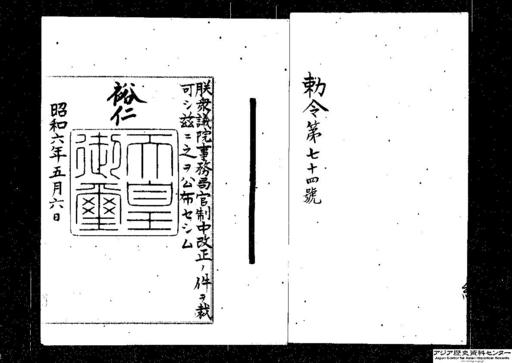 勅令第七十四號
朕衆議院事務局官制中改正ノ件ヲ裁
可シ茲ニ之ヲ公布セシム
裕仁
天皇
御璽
昭和六年五月六日
アジア歴史資料センター
Japan Center for Asian Historical Records